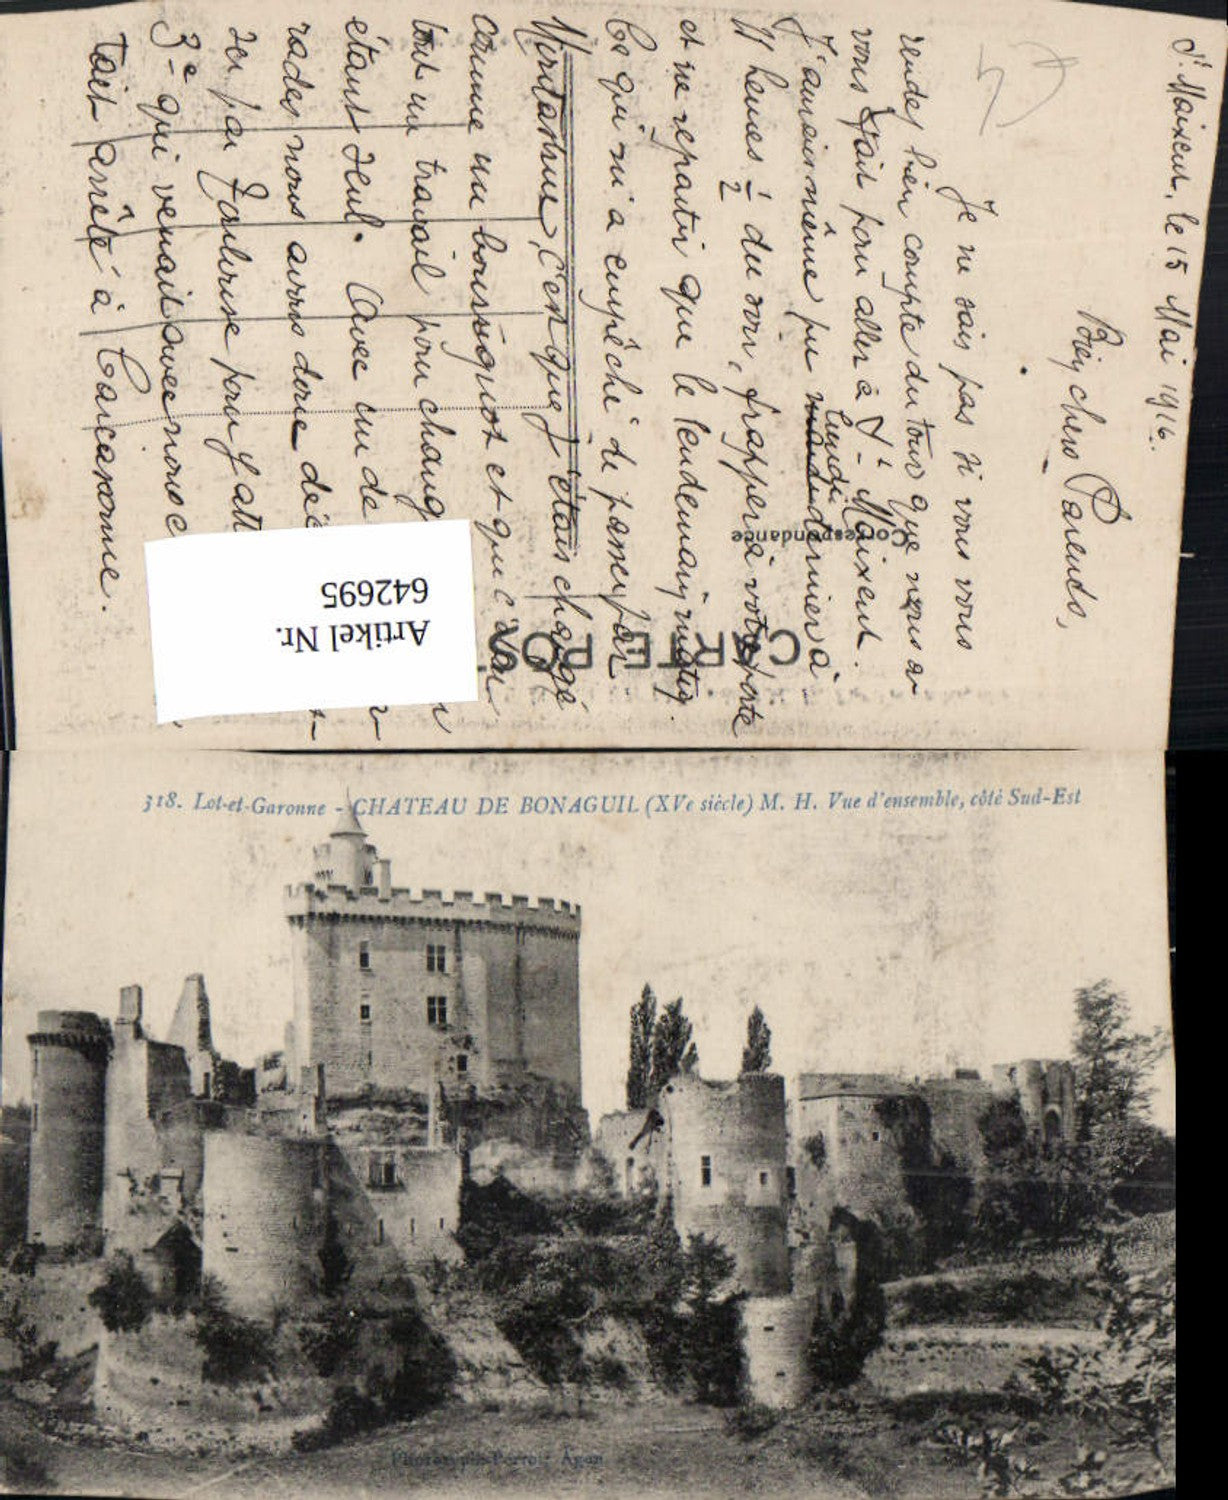 St Maixent, le 15 Mai 1916.
Bien chers Parents,
Je ne sais pas si vous vous
rendez bien compte du tour que nous
vous fait pour aller à St- Maixent.
J'aurais même pu lundi dernier à
11 heures 1/2 du soir, frapper à votre porte
et ne repartir que le lendemain matin.
Ce qui m'a empêché de passer par
c'est que j'étais chargé
comme un bourriquot et que c'
tout un travail pour
étant seul. Avec un de
rades nous avons donc
3e- qui venait avec nous
tait arrêté à Carcassonne.
Correspondance
CARTE POS
Artikel Nr.
642695
318. Lot-et-Garonne - CHATEAU DE BONAGUIL (XVe siècle) M. H. Vue d'ensemble, côté Sud-Est
Agen